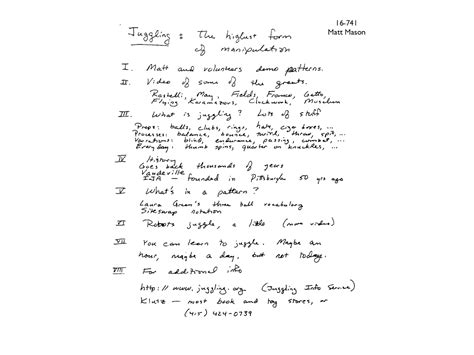 16-741
Matt Mason
Juggling : The highest form
of manipulation
I. Matt and volunteers demo patterns.
II. Video of some of the greats.
Rastelli, May, Fields, Franco, Gatto,
Flying Karamazovs, Clockwork, Moschen
III. What is juggling? Lots of stuff
Props: balls, clubs, rings, hats, cigar boxes, ...
Processes: balance, bounce, twirl, throw, spit, ...
Variations: blind, endurance, passing, combat, ...
Everyday: thumb spins, quarter on knuckles, ...
IV History
Goes back thousands of years
Vaudeville
IJA — founded in Pittsburgh 50 yrs ago
V What's in a pattern?
Laura Green's three ball vocabulary
Siteswap notation
VI Robots juggle, a little (more video)
VII You can learn to juggle. Maybe an
hour, maybe a day, but not today.
VIII For additional info
http://www.juggling.org (Juggling Info Service)
Klutz — most book and toy stores, or
(415) 424-0739